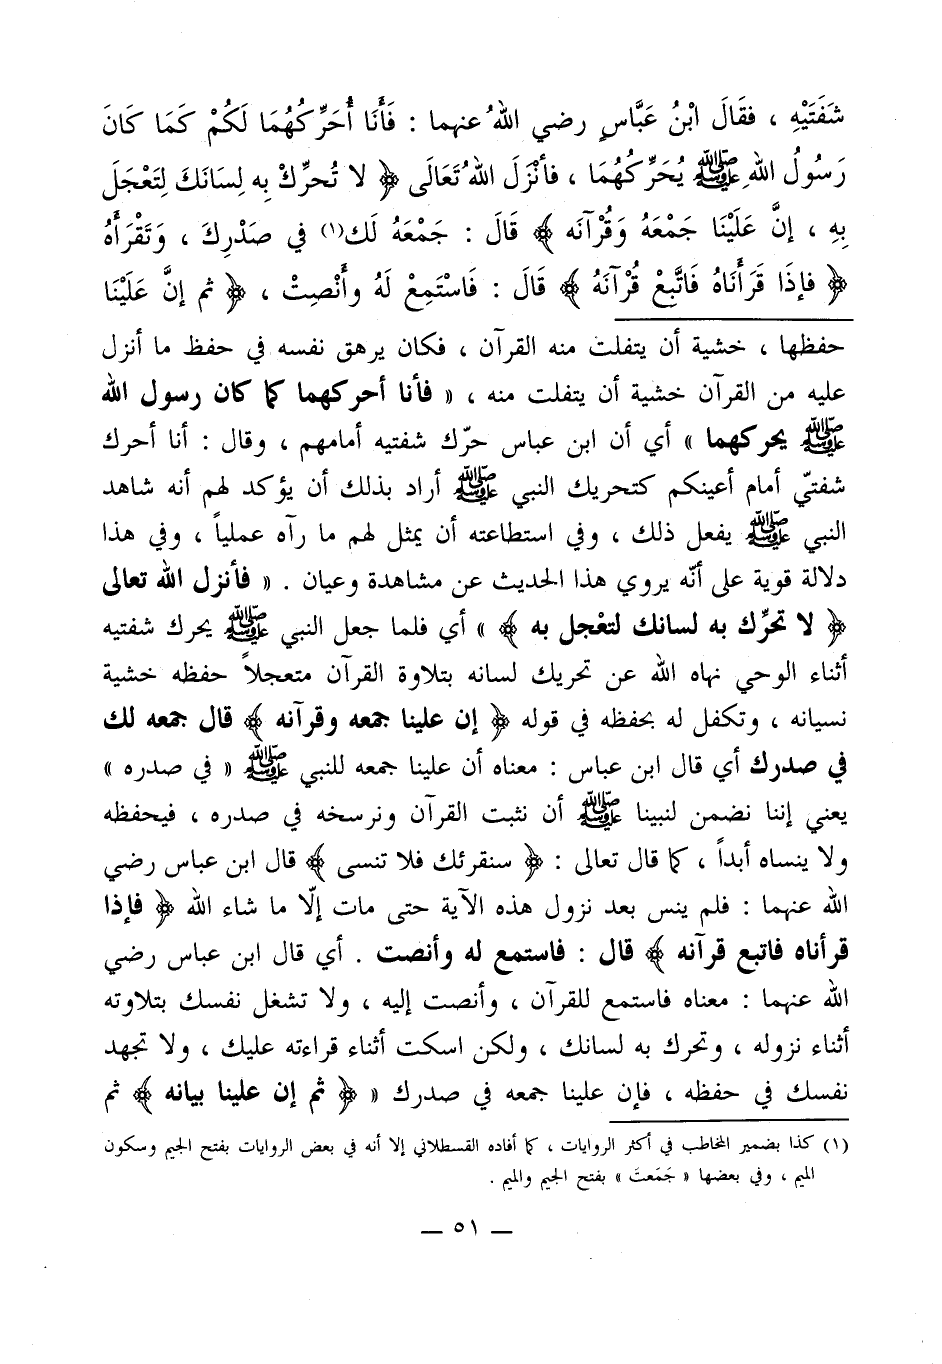 شَفَتَيْهِ ، فقَالَ ابْنُ عَبَّاسٍ رضي اللهُ عنهما : فَأَنَا أُحَرِّكُهُمَا لَكُمْ كَمَا كَانَ
رَسُولُ اللهِ ﷺ يُحَرِّكُهُمَا ، فأنْزَلَ اللهُ تَعَالَى ﴿ لا تُحرِّكْ بِه لِسَانَكَ لِتَعْجَلَ
بِهِ ، إنَّ عَلَيْنَا جَمْعَهُ وَقُرْآنَه ﴾ قَالَ : جَمْعَهُ لَك(١) في صَدْرِكَ ، وَتَقْرَأَهُ
﴿ فإذَا قَرَأْنَاهُ فَاتَّبِعْ قُرْآنَهُ ﴾ قَالَ : فَاسْتَمِعْ لَهُ وأَنْصِتْ ، ﴿ ثم إنَّ عَلَيْنَا
حفظها ، خشية أن يتفلت منه القرآن ، فكان يرهق نفسه في حفظ ما أنزل
عليه من القرآن خشية أن يتفلت منه ، « فأنا أحركهما كما كان رسول الله
ﷺ يحركهما » أي أن ابن عباس حرّك شفتيه أمامهم ، وقال : أنا أحرك
شفتيّ أمام أعينكم كتحريك النبي ﷺ أراد بذلك أن يؤكد لهم أنه شاهد
النبي ﷺ يفعل ذلك ، وفي استطاعته أن يمثل لهم ما رآه عملياً ، وفي هذا
دلالة قوية على أنّه يروي هذا الحديث عن مشاهدة وعيان . « فأنزل الله تعالى
﴿ لا تحرِّك به لسانك لتعْجل به ﴾ » أي فلما جعل النبي ﷺ يحرك شفتيه
أثناء الوحي نهاه الله عن تحريك لسانه بتلاوة القرآن متعجلاً حفظه خشية
نسيانه ، وتكفل له بحفظه في قوله ﴿ إن علينا جمعه وقرآنه ﴾ قال جمعه لك
في صدرك أي قال ابن عباس : معناه أن علينا جمعه للنبي ﷺ « في صدره »
يعني إننا نضمن لنبينا ﷺ أن نثبت القرآن ونرسخه في صدره ، فيحفظه
ولا ينساه أبداً ، كما قال تعالى : ﴿ سنقرئك فلا تنسى ﴾ قال ابن عباس رضي
الله عنهما : فلم ينس بعد نزول هذه الآية حتى مات إلّا ما شاء الله ﴿ فإذا
قرأناه فاتبع قرآنه ﴾ قال : فاستمع له وأنصت . أي قال ابن عباس رضي
الله عنهما : معناه فاستمع للقرآن ، وأنصت إليه ، ولا تشغل نفسك بتلاوته
أثناء نزوله ، وتحرك به لسانك ، ولكن اسكت أثناء قراءته عليك ، ولا تجهد
نفسك في حفظه ، فإن علينا جمعه في صدرك « ﴿ ثم إن علينا بيانه ﴾ ثم
(١) كذا بضمير المخاطب في أكثر الروايات ، كما أفاده القسطلاني إلا أنه في بعض الروايات بفتح الجيم وسكون
الميم ، وفي بعضها « جَمَعتَ » بفتح الجيم والميم .
— ٥١ —